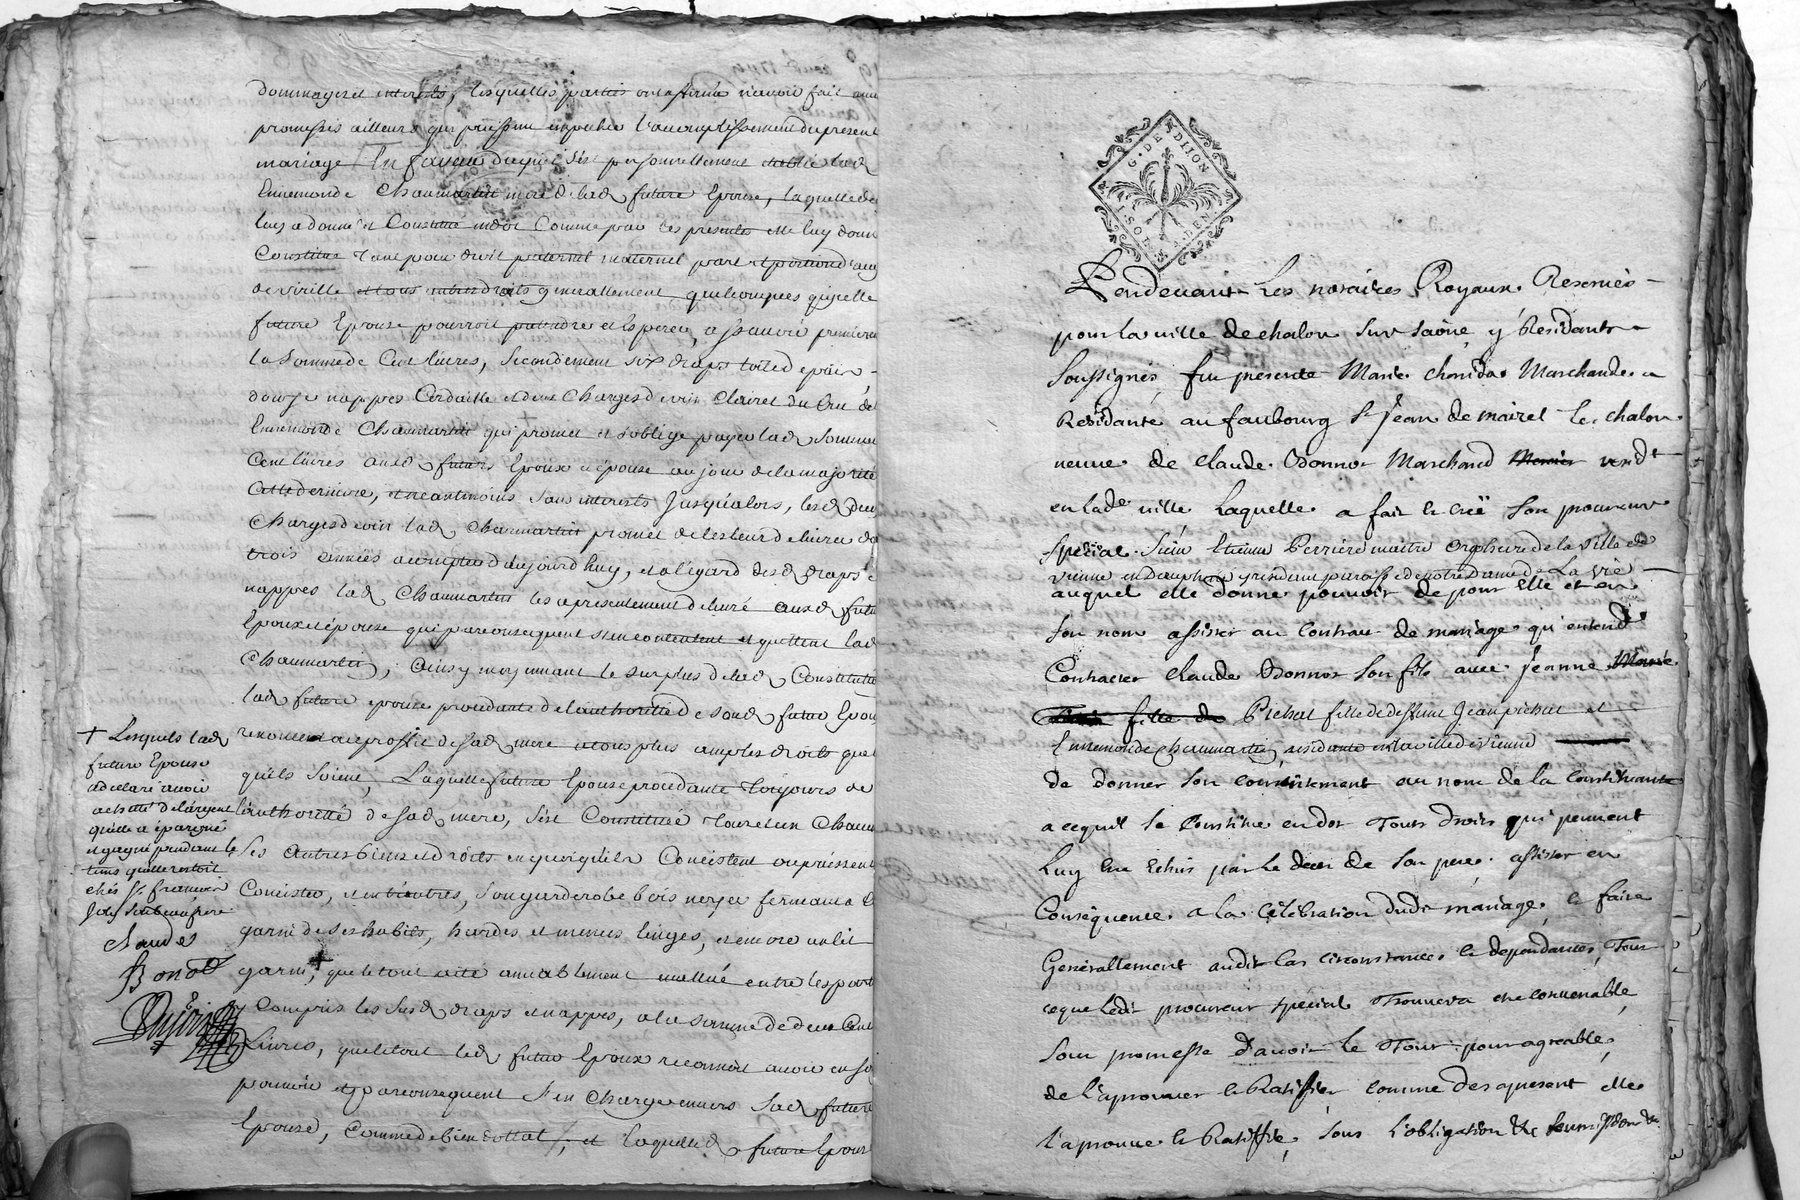 dommages et interests, lesquelles parties ont affirmé n'avoir fait
promesses ailleurs qui puissent empecher l'accomplissement du present
mariage En faveur duquel s'est personnellement establie lad
Ennemonde Chaumartin mere de lad future Epouse, laquelle
luy a donné et Constitué en dot Comme par les presentes elle luy donne
Constitue tant pour droit paternel maternel part et portion
generallement quelconques qu'icelle
future Epouse pourroit pretendre et esperer, a sçavoir premierement
la somme de Cent livres, secondement six draps toile d
douze nappes et deux Charges de vin Clairet du Cru de
Ennemonde Chaumartin qui promet et s'oblige payer lad somme
Cent livres auxd futurs Epoux et épouse au jour de la majorité
Cette derniere, et neantmoins sans interests Jusqu'alors, lesd deux
Charges de vin lad Chaumartin promet de les leur delivrer
trois années a compter d'aujourd'huy, et a l'égard desd draps
nappes lad Chaumartin les a presentement delivré auxd futurs
Epoux et épouse qui par consequent s'en contentent et quittent lad
Chaumartin, ainsy moyennant le surplus de lad Constitution
lad future epouse procedante de l'authorité de sond futur Epoux
renonce au profit de sad mere a tous plus amples droits
qu'ils soient, Laquelle future Epouse procedante toujours de
l'authorité de sad mere, s'est Constituée
ses autres biens et droits en quoi qu'ils Concistent ou puissent
Concister, et entr'autres, son garderobe bois noyer fermant a
garni de ses habits, hardes et menus linges, et encore un lit
garni, + que le tout a été amiablement evallué entre les parties
Compris les susd draps et nappes, a la somme de deux Cent
Livres, que le tout led futur Epoux reconnoit avoir en so
pouvoir et par consequent s'en Charge envers sad future
Epouse, Comme de bien dottal, et laquelle d future Epouse
+ Lesquels lad
future Epouse
a declaré avoir
achetté de l'argent
qu'elle a épargné
et gagné pendant le
tems qu'elle restoit
chés Sr. francois
Joly son beaufrere
Claude
Bonot
G. DE N DIJON
Pardevant les notaires Royaux Reservés
pour la ville de chalon sur saone y Residants
soussignés, fut presente Marie Marchande
Residante au faubourg St Jean de maizel les chalon
veuve de Claude Bonnot Marchand Mercier
en lade ville Laquelle a fait et creé son procureur
special Sieur Etienne Perriere maitre Orphevre de la ville de
vienne en Dauphiné y residant paroisse de notre Dame de La vie
auquel elle donne pouvoir de pour elle et en
son nom assister au Contrat de mariage qu'entend
Contracter Claude Bonnot son fils avec Jeanne Marie
fille de Pichat fille de deffunt Jean pichat et
Ennemonde Chaumartin, residante en la ville de vienne
de donner son consentement au nom de la Constituante
a ce qu'il se Constitue en dot Tous droits qui peuvent
Luy etre Echus par le deces de son pere, assister en
Consequence a la Celebration dudt mariage, et faire
Generallement audit cas circonstances et dependances, Tout
ce que ledit procureur special Trouvera etre convenable,
sous promesse d'avoir le Tout pour agreable,
de l'aprouver et Ratiffier comme des apresent elle
l'aprouve et Ratiffie, sous l'obligation de soumission de